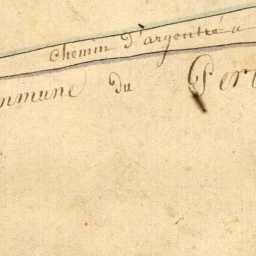 Chemin d'argentré a
mmune du Per